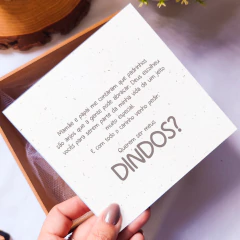 Mamãe e papai me contaram que padrinhos
são anjos que a gente pode abraçar. Deus escolheu
vocês para serem parte da minha vida de um jeito
muito especial.
E com todo o carinho venho pedir:
Querem ser meus
DINDOS?